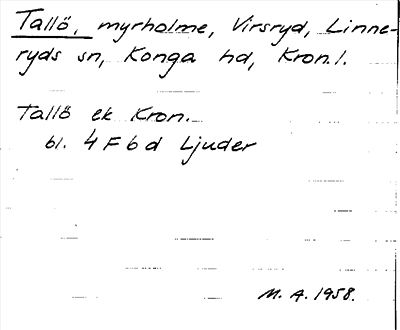 Tallö, myrholme, Virsryd, Linne-
ryds sn, Konga hd, Kron.l.
Tallö ek Kron.
bl. 4 F 6 d Ljuder
M. A. 1958.